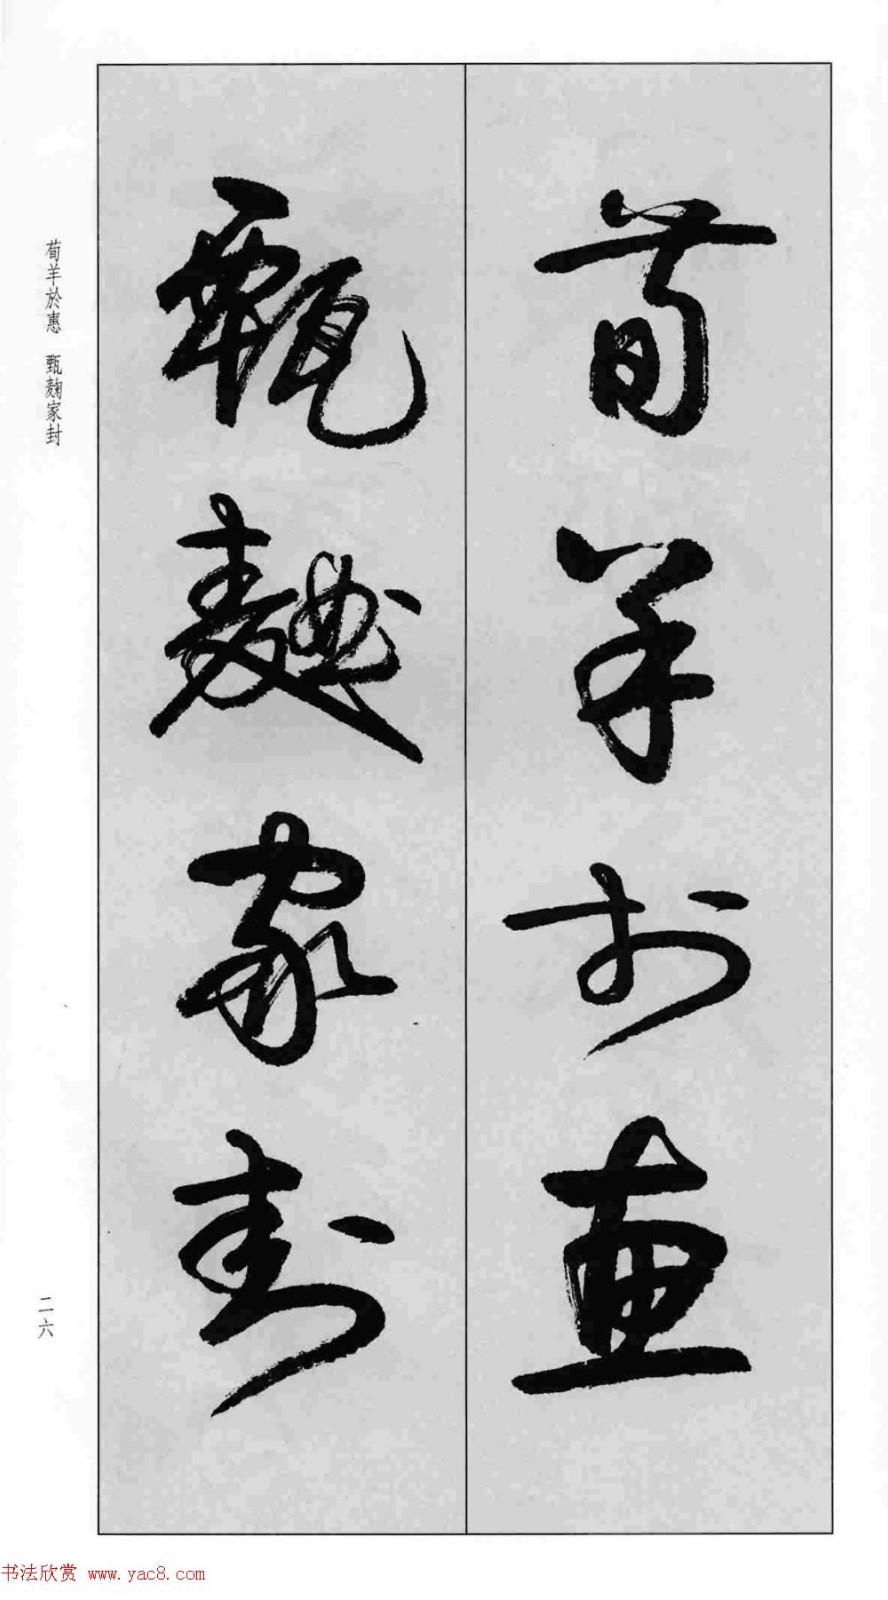 荀羊於惠
甄麹家封
荀羊於惠 甄麹家封
二六
书法欣赏 www.yac8.com